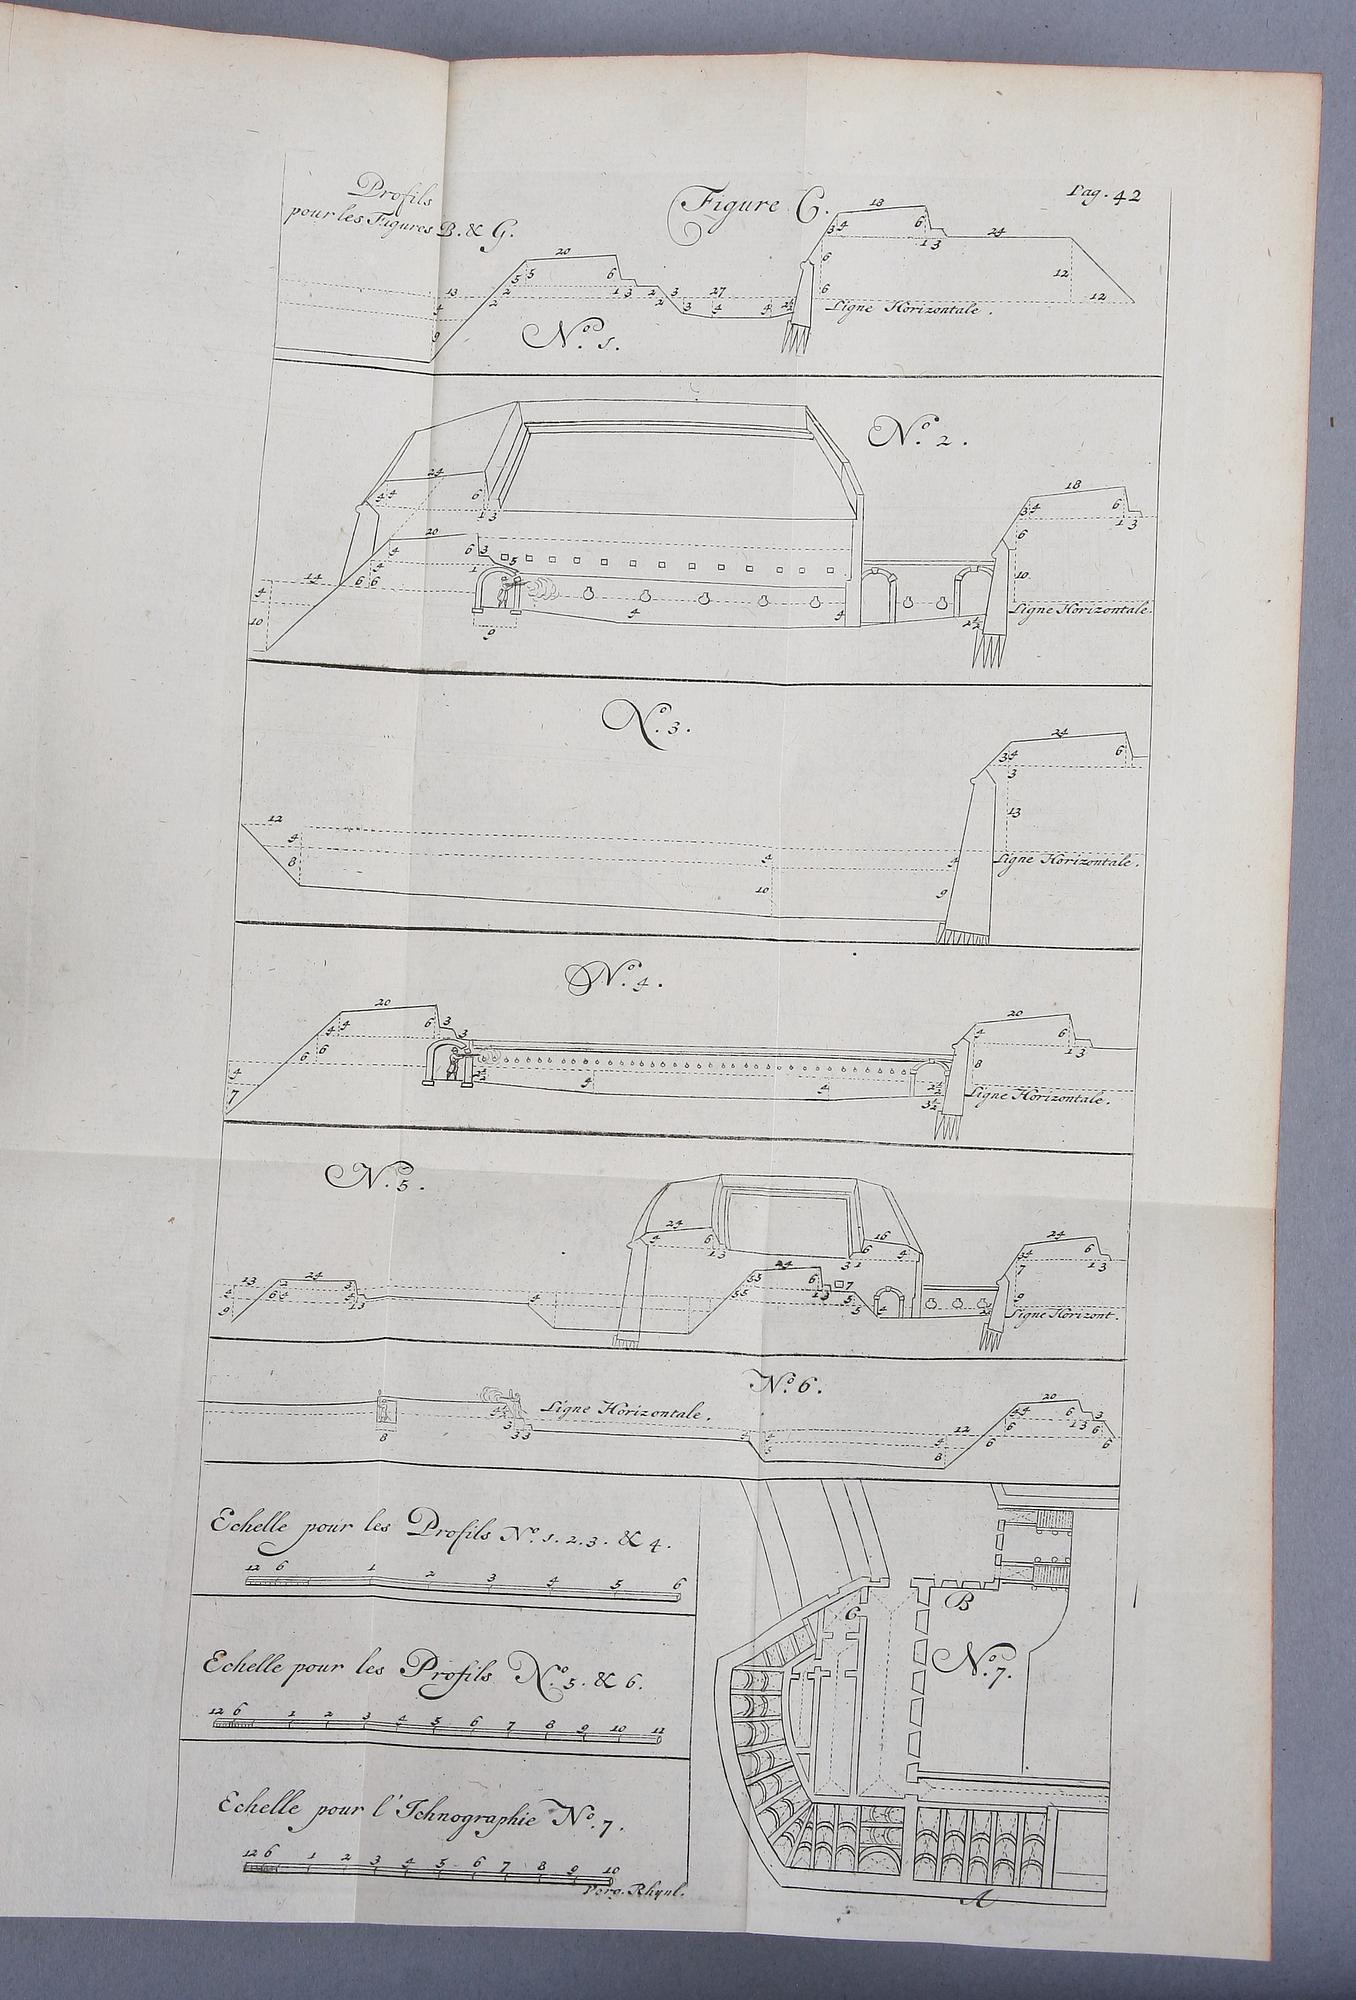 Profils
pour les Figures B. & G.
Figure C.
Pag. 42
18
3 4
6
1 3
24
20
5 5
6
6
1 3
2
3
12
13
2
2
2
3
27
4
4
2½
6
12
4
9
Ligne Horizontale.
N.º 1.
N.º 2.
24
4 4
6
1 3
18
3 4
6
1 3
20
6 3
6
4
4
1
5
14
6 6
10
4
4
4
Ligne Horizontale.
10
2½
9
N.º 3.
24
3 4
6
3
13
12
4
4
4
8
Ligne Horizontale.
10
9
N.º 4.
20
4 4
6 3
3
20
4
6
1 3
6 6
8
4
2½
4
4
2½
7
3½
Ligne Horizontale.
N.º 5.
24
4
6
1 3
16
6
4
3 1
24
3 4
6
1 3
7
24
3 3
6
1 3
7
13
24
2
3
4
6 4
4
1 3
4
5 5
5
5
4
9
9
2½
Ligne Horizont.
N.º 6.
20
4 4
6
1 3
3
Ligne Horizontale.
3
3 3
8
4
4
5
12
4
8
6
6
6
6
Echelle pour les Profils N.º 1. 2. 3. & 4.
12 6 1 2 3 4 5 6
Echelle pour les Profils N.º 5. & 6.
12 6 1 2 3 4 5 6 7 8 9 10 11
Echelle pour l'Ichnographie N.º 7.
12 6 1 2 3 4 5 6 7 8 9 10
Perg. Rhynl.
C
B
N.º 7.
A